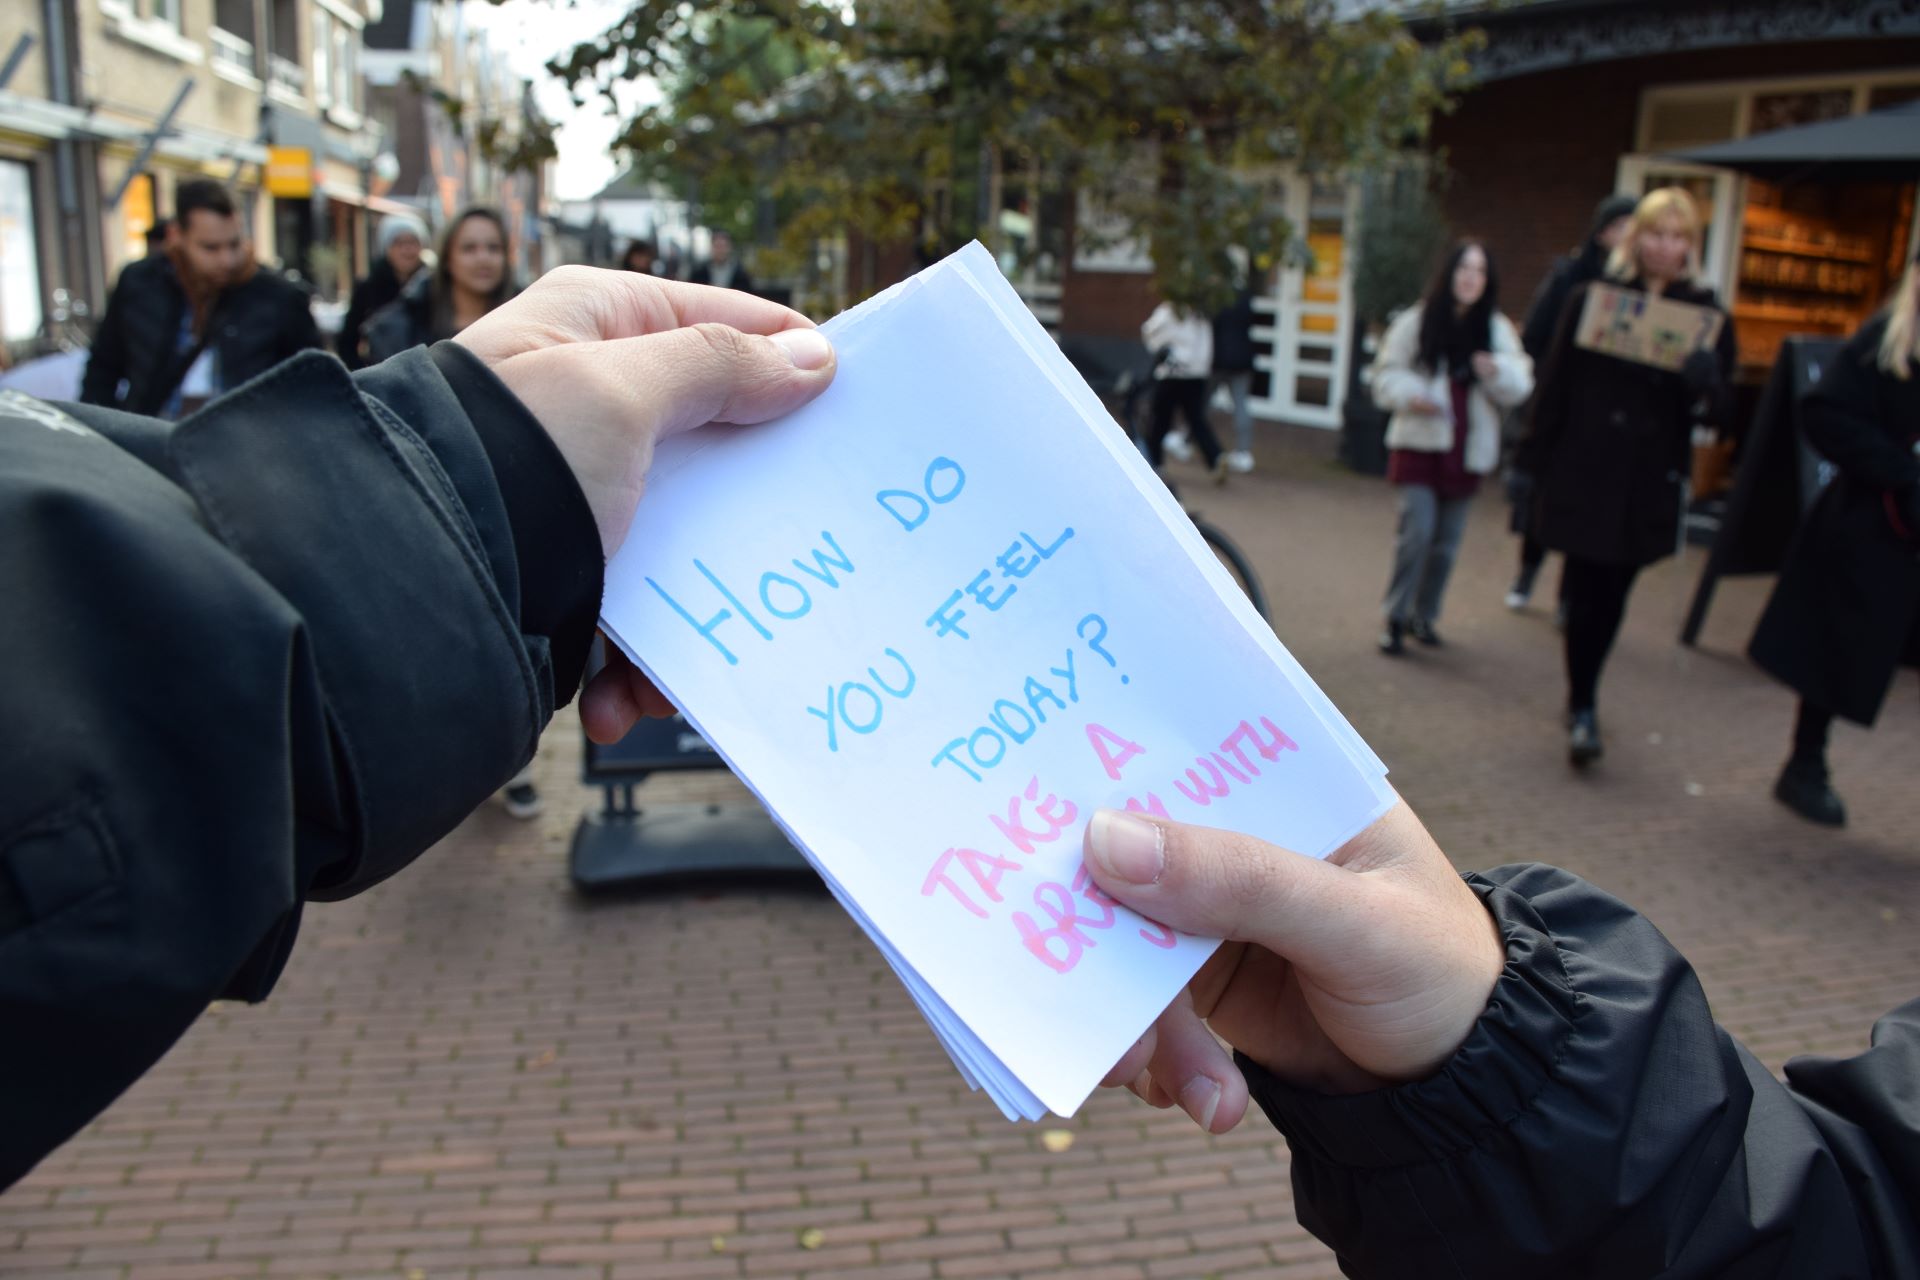 HOW DO
YOU FEEL
TODAY?
TAKE A
WITH